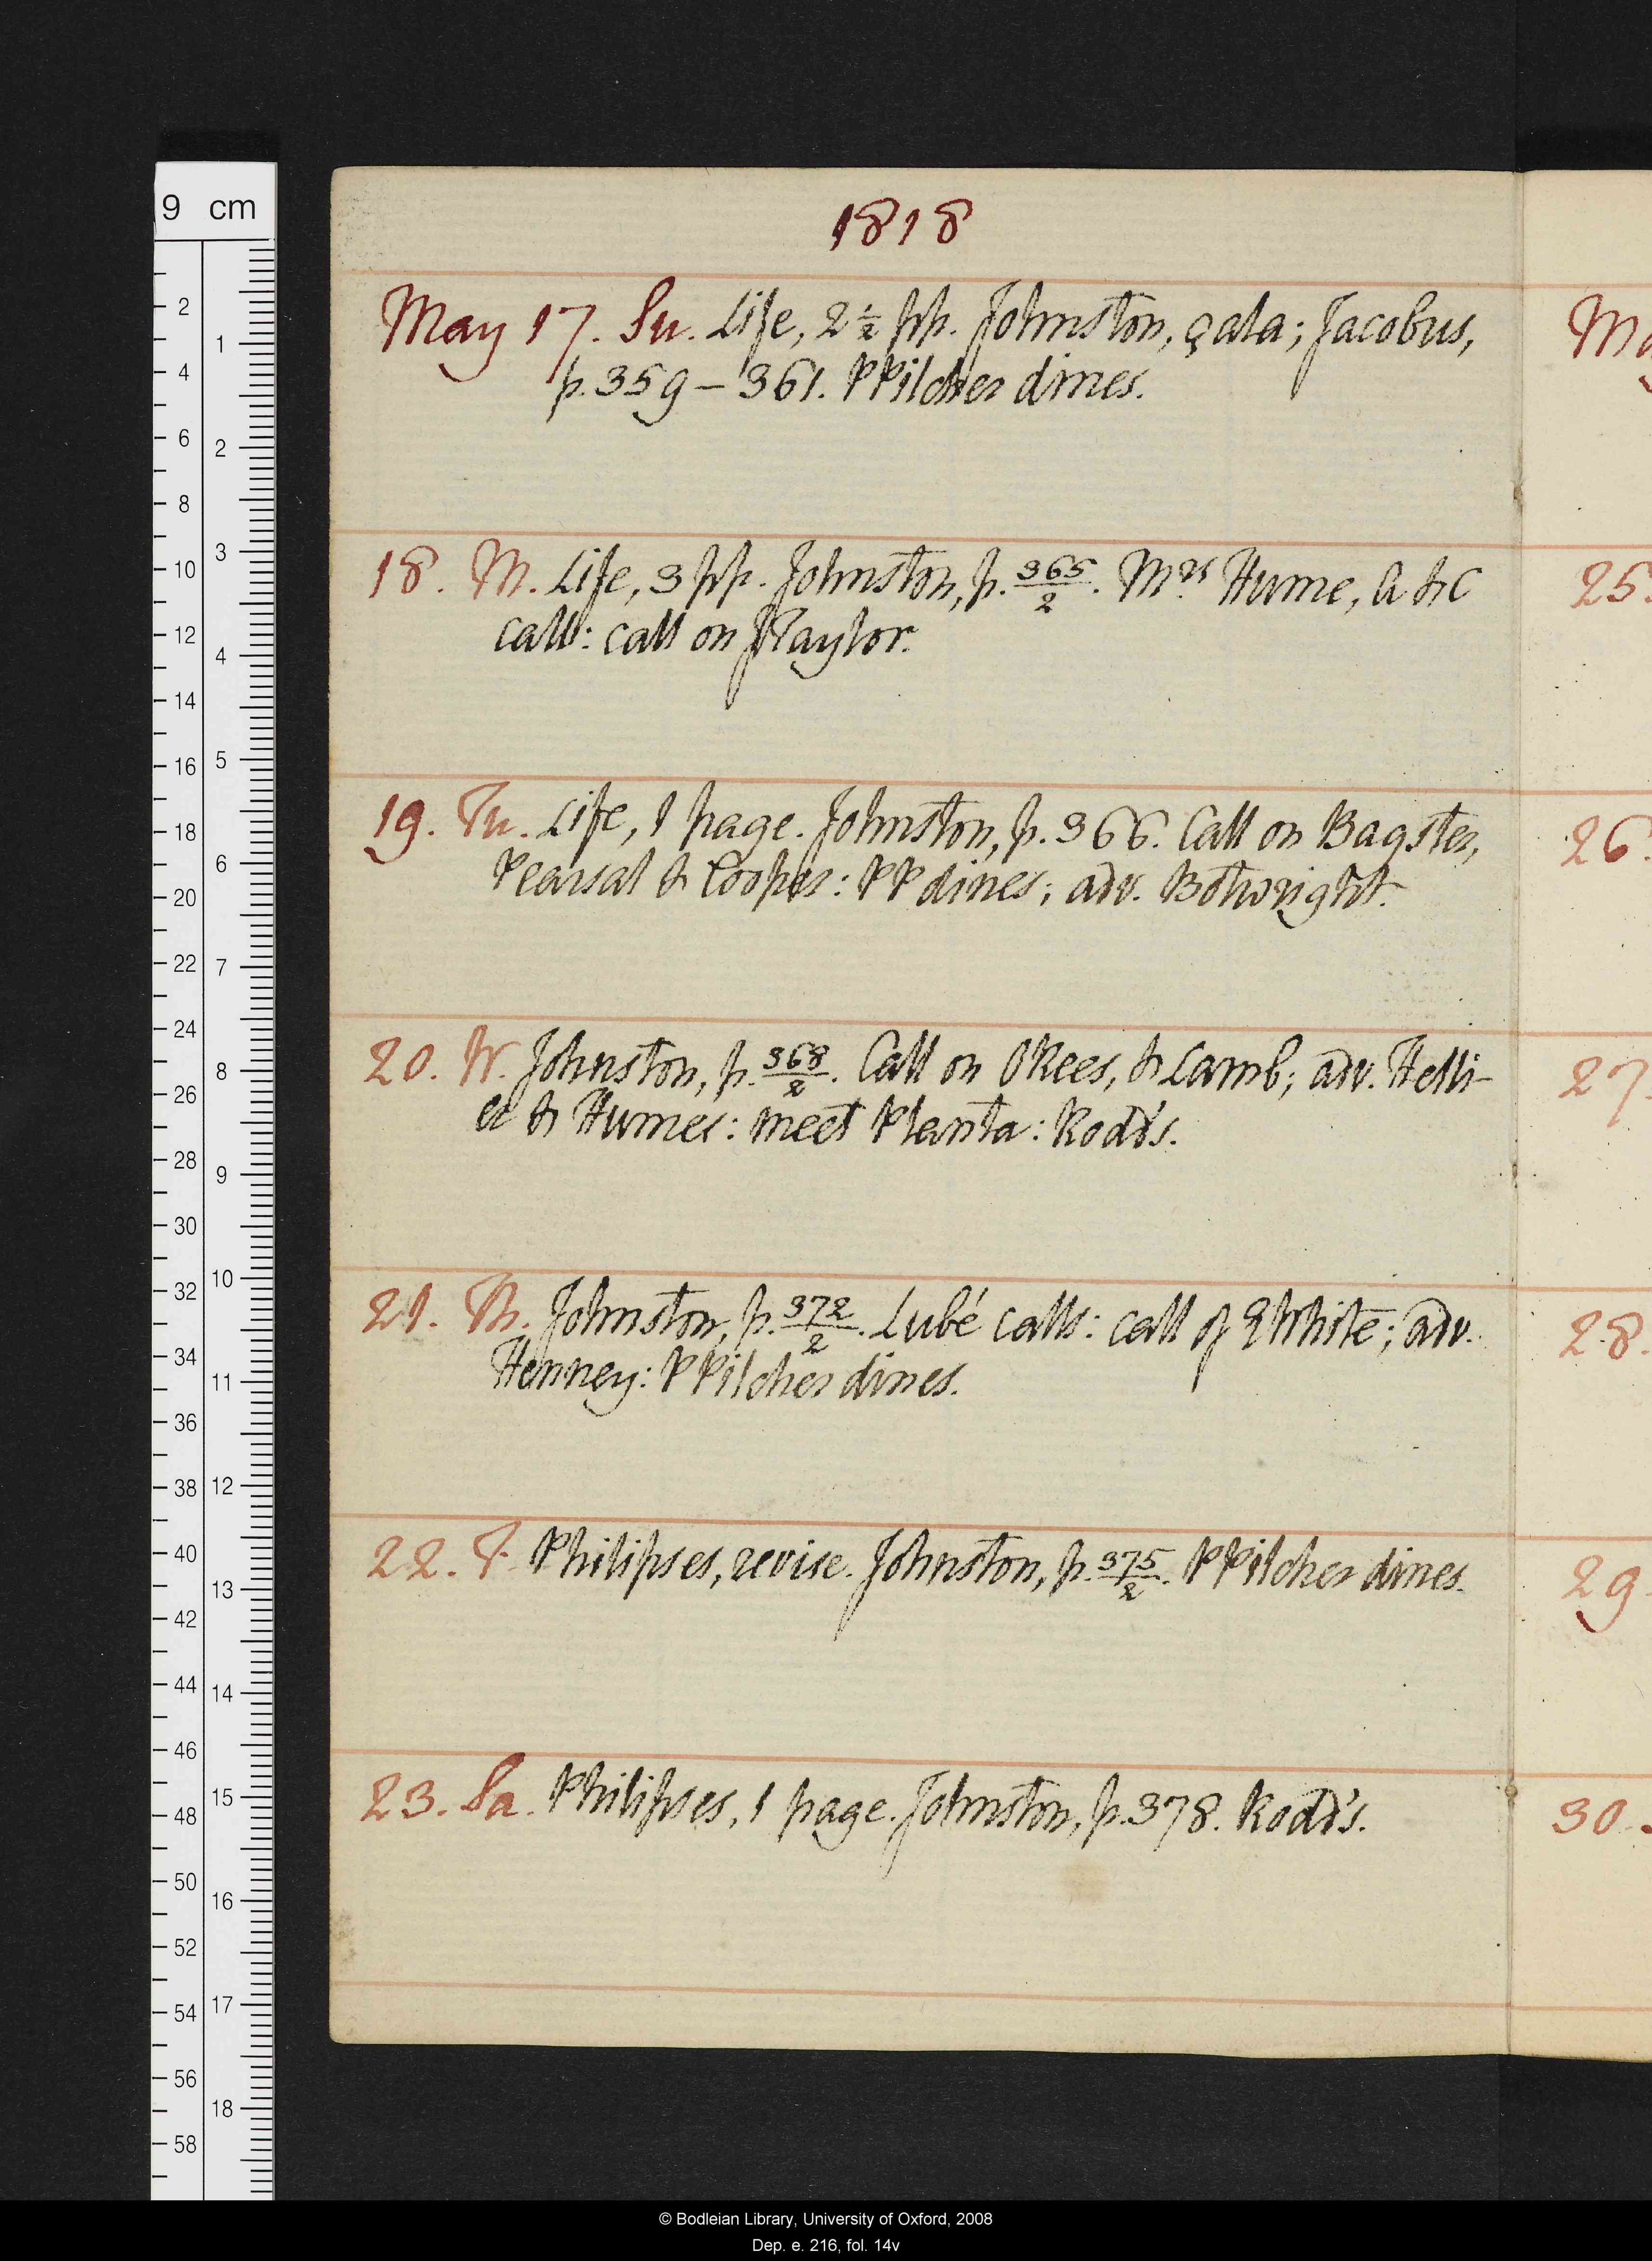 1818
May 17. Su. Life, 2 ½ pp. Johnston, çala; Jacobus,
p. 359 – 361. PPilcher dines.
18. M. Life, 3 pp. Johnston, p. 365/2. Mrs Hume, A & C
call: call on JTaylor.
19. Tu. Life, 1 page. Johnston, p. 366. Call on Bagster,
Pearsal & Cooper: PP dines; adv. Botwright.
20. W. Johnston, p. 368/2. Call on ORees, & Lamb; adv. Helli-
er & Humes: meet Planta: Rodd's.
21. Th. Johnston, p. 372/2. Lubé calls: call of EWhite; adv.
Henney: PPilcher dines.
22. F. Philipses, revise. Johnston, p. 375/2. PPilcher dines.
23. Sa. Philipses, 1 page. Johnston, p. 378. Rodd's.
Ma
25.
26.
27.
28.
29.
30.
9 cm
2
4
6
8
10
12
14
16
18
20
22
24
26
28
30
32
34
36
38
40
42
44
46
48
50
52
54
56
58
1
2
3
4
5
6
7
8
9
10
11
12
13
14
15
16
17
18
© Bodleian Library, University of Oxford, 2008
Dep. e. 216, fol. 14v